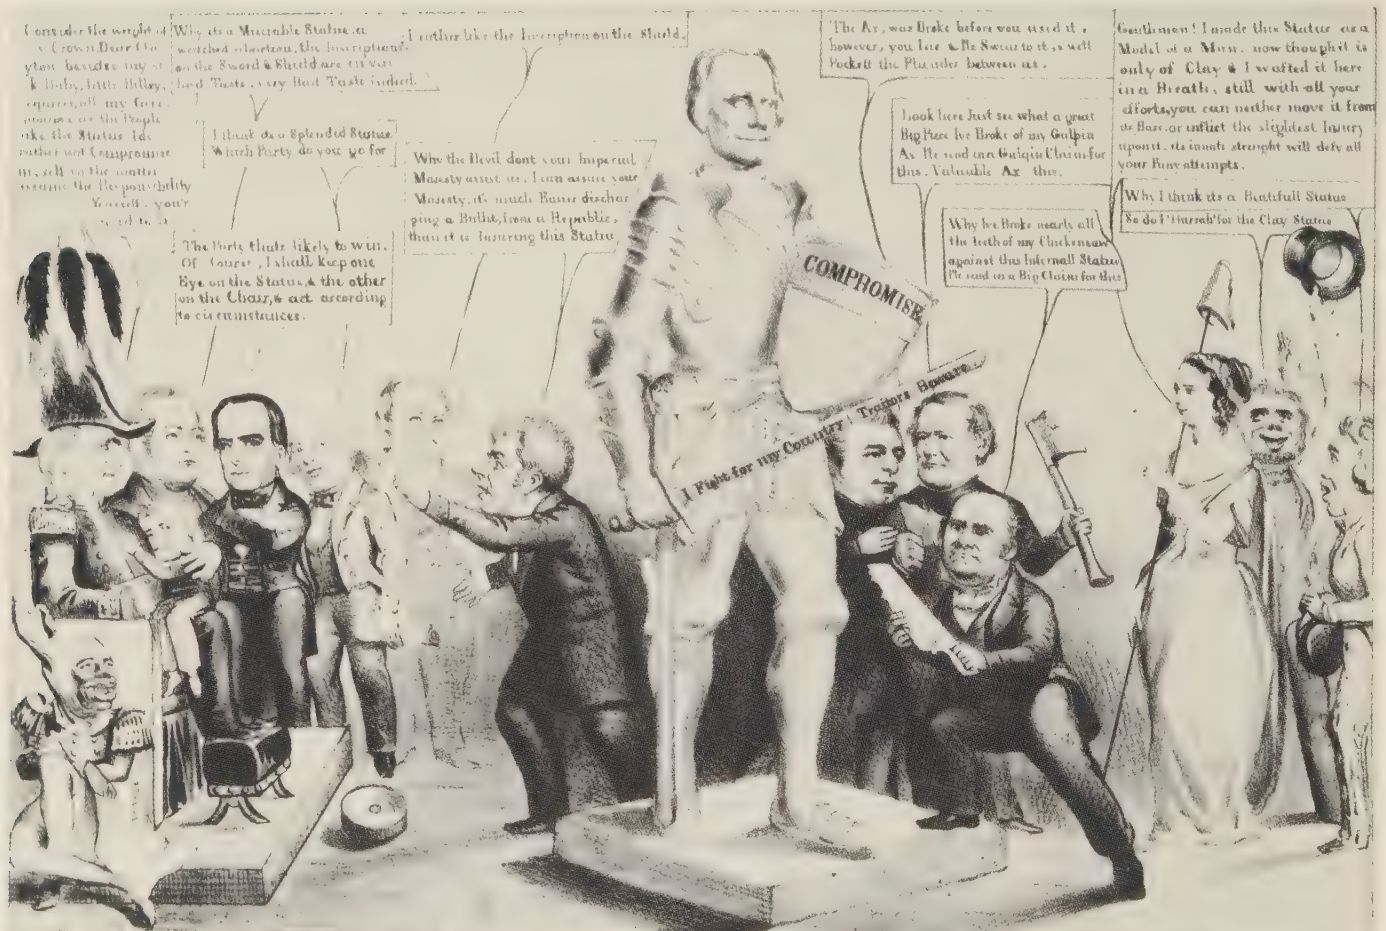 Consider the weight of
a Crown, Dear Cla
yton besides my
little Hitley,
all my
as the People
like the Statue Id
rather not Compromise
self in the matter
assume the Responsibility
Yourself, your
Why its a Miserable Statue, a
wretched abortion, the Inscriptions
on the Sword & Shield are in very
bad Taste, very Bad Taste indeed.
I think its a Splendid Statue
Which Party do you go for
The Party thats likely to win.
Of Course, I shall keep one
Eye on the Statue, & the other
on the Chair, & act according
to circumstances.
I rather like the Inscription on the Shield.
Why the Devil dont your Imperial
Majesty assist us, I can assure your
Majesty, it's much Easier dischar
ging a Bullit, from a Republic,
than it is Injuring this Statue
The Ax, was Broke before you used it,
however, you Lie & Ile Swear to it, & well
Pockett the Plunder between us.
Look here Just see what a great
Big Piece Ive Broke of my Galpin
Ax Ile send in a Galpin Claim for
this. Valuable Ax this.
Why Ive Broke nearly all
the teeth of my Chickensaw
against this Infernall Statue
Ile send in a Big Claim for this
Gentlemen! I made this Statue as a
Model of a Man. now though it is
only of Clay & I wafted it here
in a Breath, still with all your
efforts, you can neither move it from
its Base, or inflict the slightest Injury
upon it. its innate strenght will defy all
your Puny attempts.
Why I think its a Beatifull Statue
So do I 'Hurrah' for the Clay Statue
COMPROMISE
I Fight for my Country! Traitors Beware